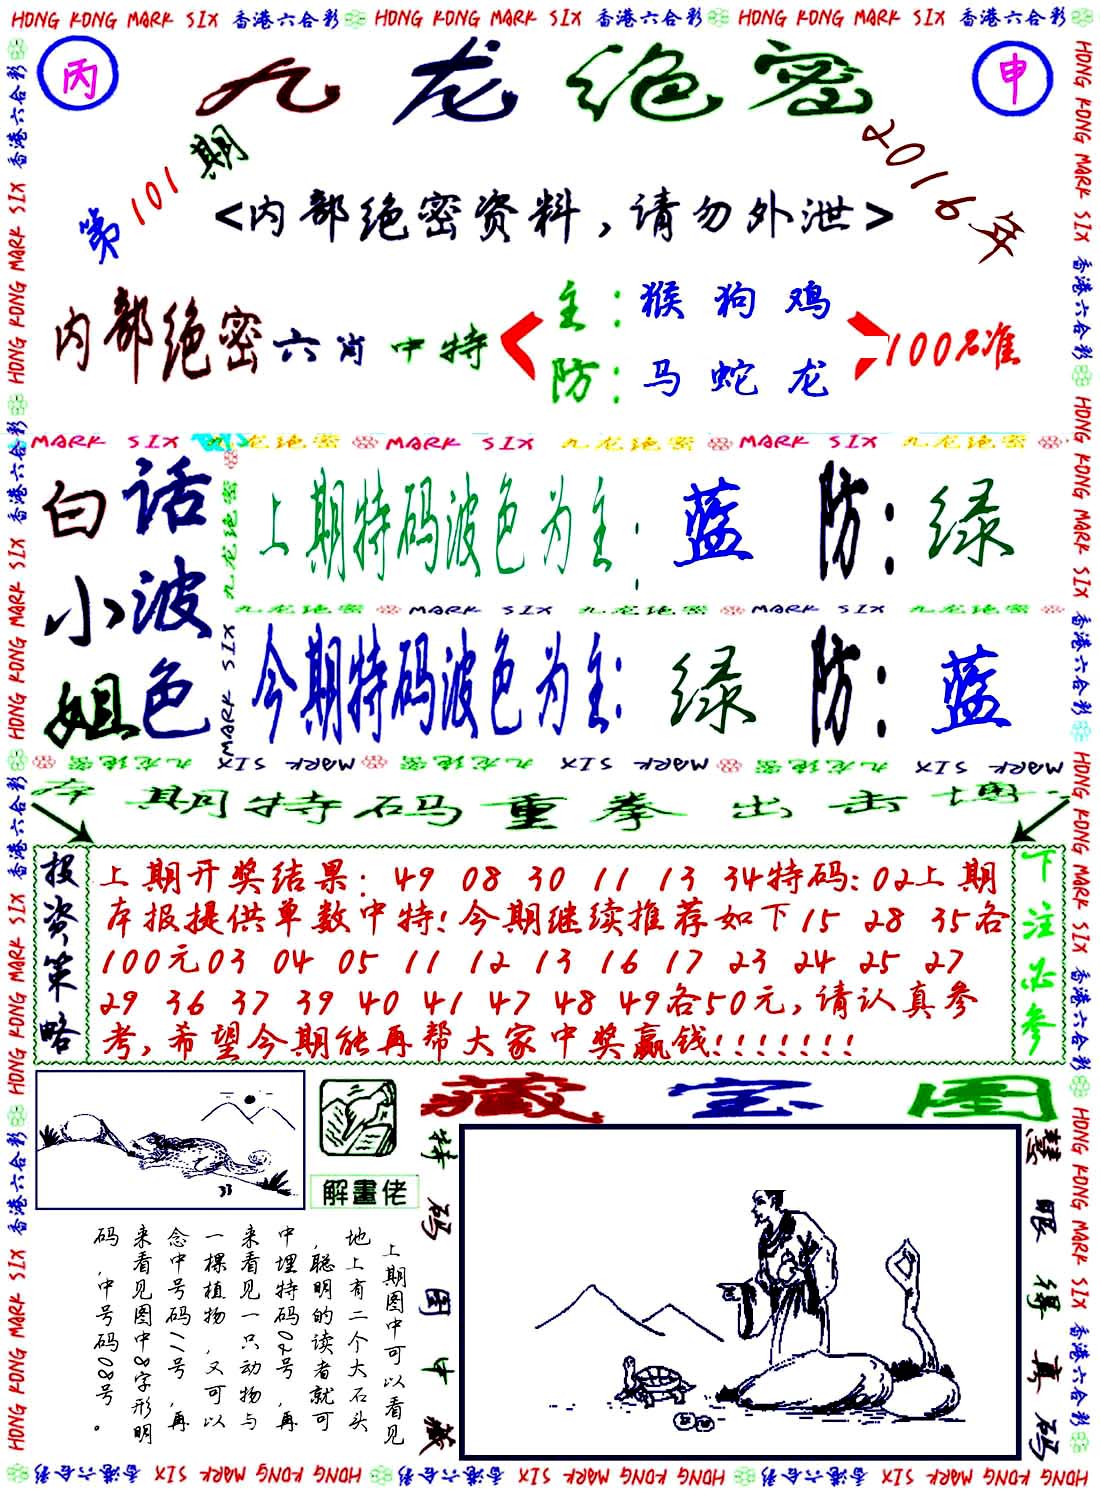 HONG KONG MARK SIX 香港六合彩 HONG KONG MARK SIX 香港六合彩 HONG KONG MARK SIX 香港六合彩
丙
九龙绝密
申
第101期
2016年
<内部绝密资料，请勿外泄>
内部绝密六肖 中特
主：猴 狗 鸡
防：马 蛇 龙
100%准
MARK SIX 九龙绝密 MARK SIX 九龙绝密 MARK SIX 九龙绝密
白小姐
话波色
上期特码波色为主：蓝 防：绿
九龙绝密 MARK SIX 九龙绝密 MARK SIX 九龙绝密
今期特码波色为主：绿 防：蓝
MARK SIX 九龙绝密 MARK SIX 九龙绝密 MARK SIX 九龙绝密
本期特码重拳出击
投资策略
上期开奖结果：49 08 30 11 13 34特码：02上期
本报提供单数中特！今期继续推荐如下15 28 35各
100元03 04 05 11 12 13 16 17 23 24 25 27
29 36 37 39 40 41 47 48 49各50元，请认真参
考，希望今期能再帮大家中奖赢钱！！！！！！！
下注必参
解畫佬
藏宝图
特码图中藏
慧眼得真码
上期图中可以看见
地上有二个大石头
，聪明的读者就可
中埋特码02号，再
来看见一只动物与
一棵植物，又可以
念中号码11号，再
来看见图中8字形明
码，中号码08号。
HONG KONG MARK SIX 香港六合彩 HONG KONG MARK SIX 香港六合彩 HONG KONG MARK SIX 香港六合彩